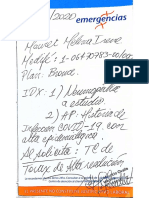 /2020
emergencias
Irene
1-06470983-00/00
Plan: Bronce.
IDX: 1) Neumopatía
a estudio
2) AP: Historia de
Infección COVID-19 con
alta epidemiológica
Se solicita: TC de
Tórax de Alta resolución